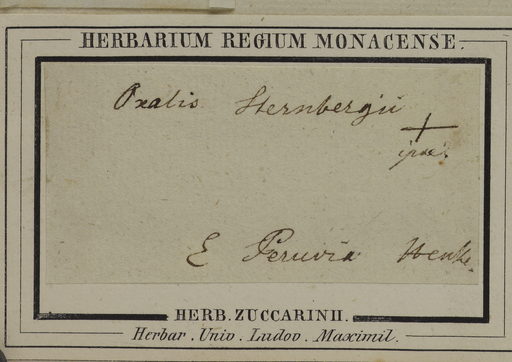 HERBARIUM REGIUM MONACENSE.
Oxalis Sternbergii
E Peruvia Henke.
HERB. ZUCCARINII.
Herbar. Univ. Ludov. Maximil.